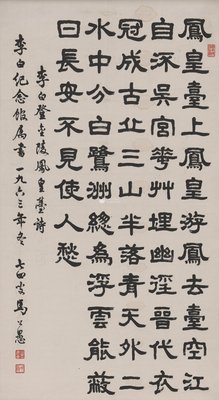 鳳皇臺上鳳皇游鳳去臺空江
自流吳宮蕐艸埋幽徑晉代衣
冠成古丘三山半落青天外二
水中分白鷺洲緫為浮雲能蔽
日長安不見使人愁
李白登金陵鳳皇臺詩
李白紀念館屬書一九六三年冬七四叟馬公愚